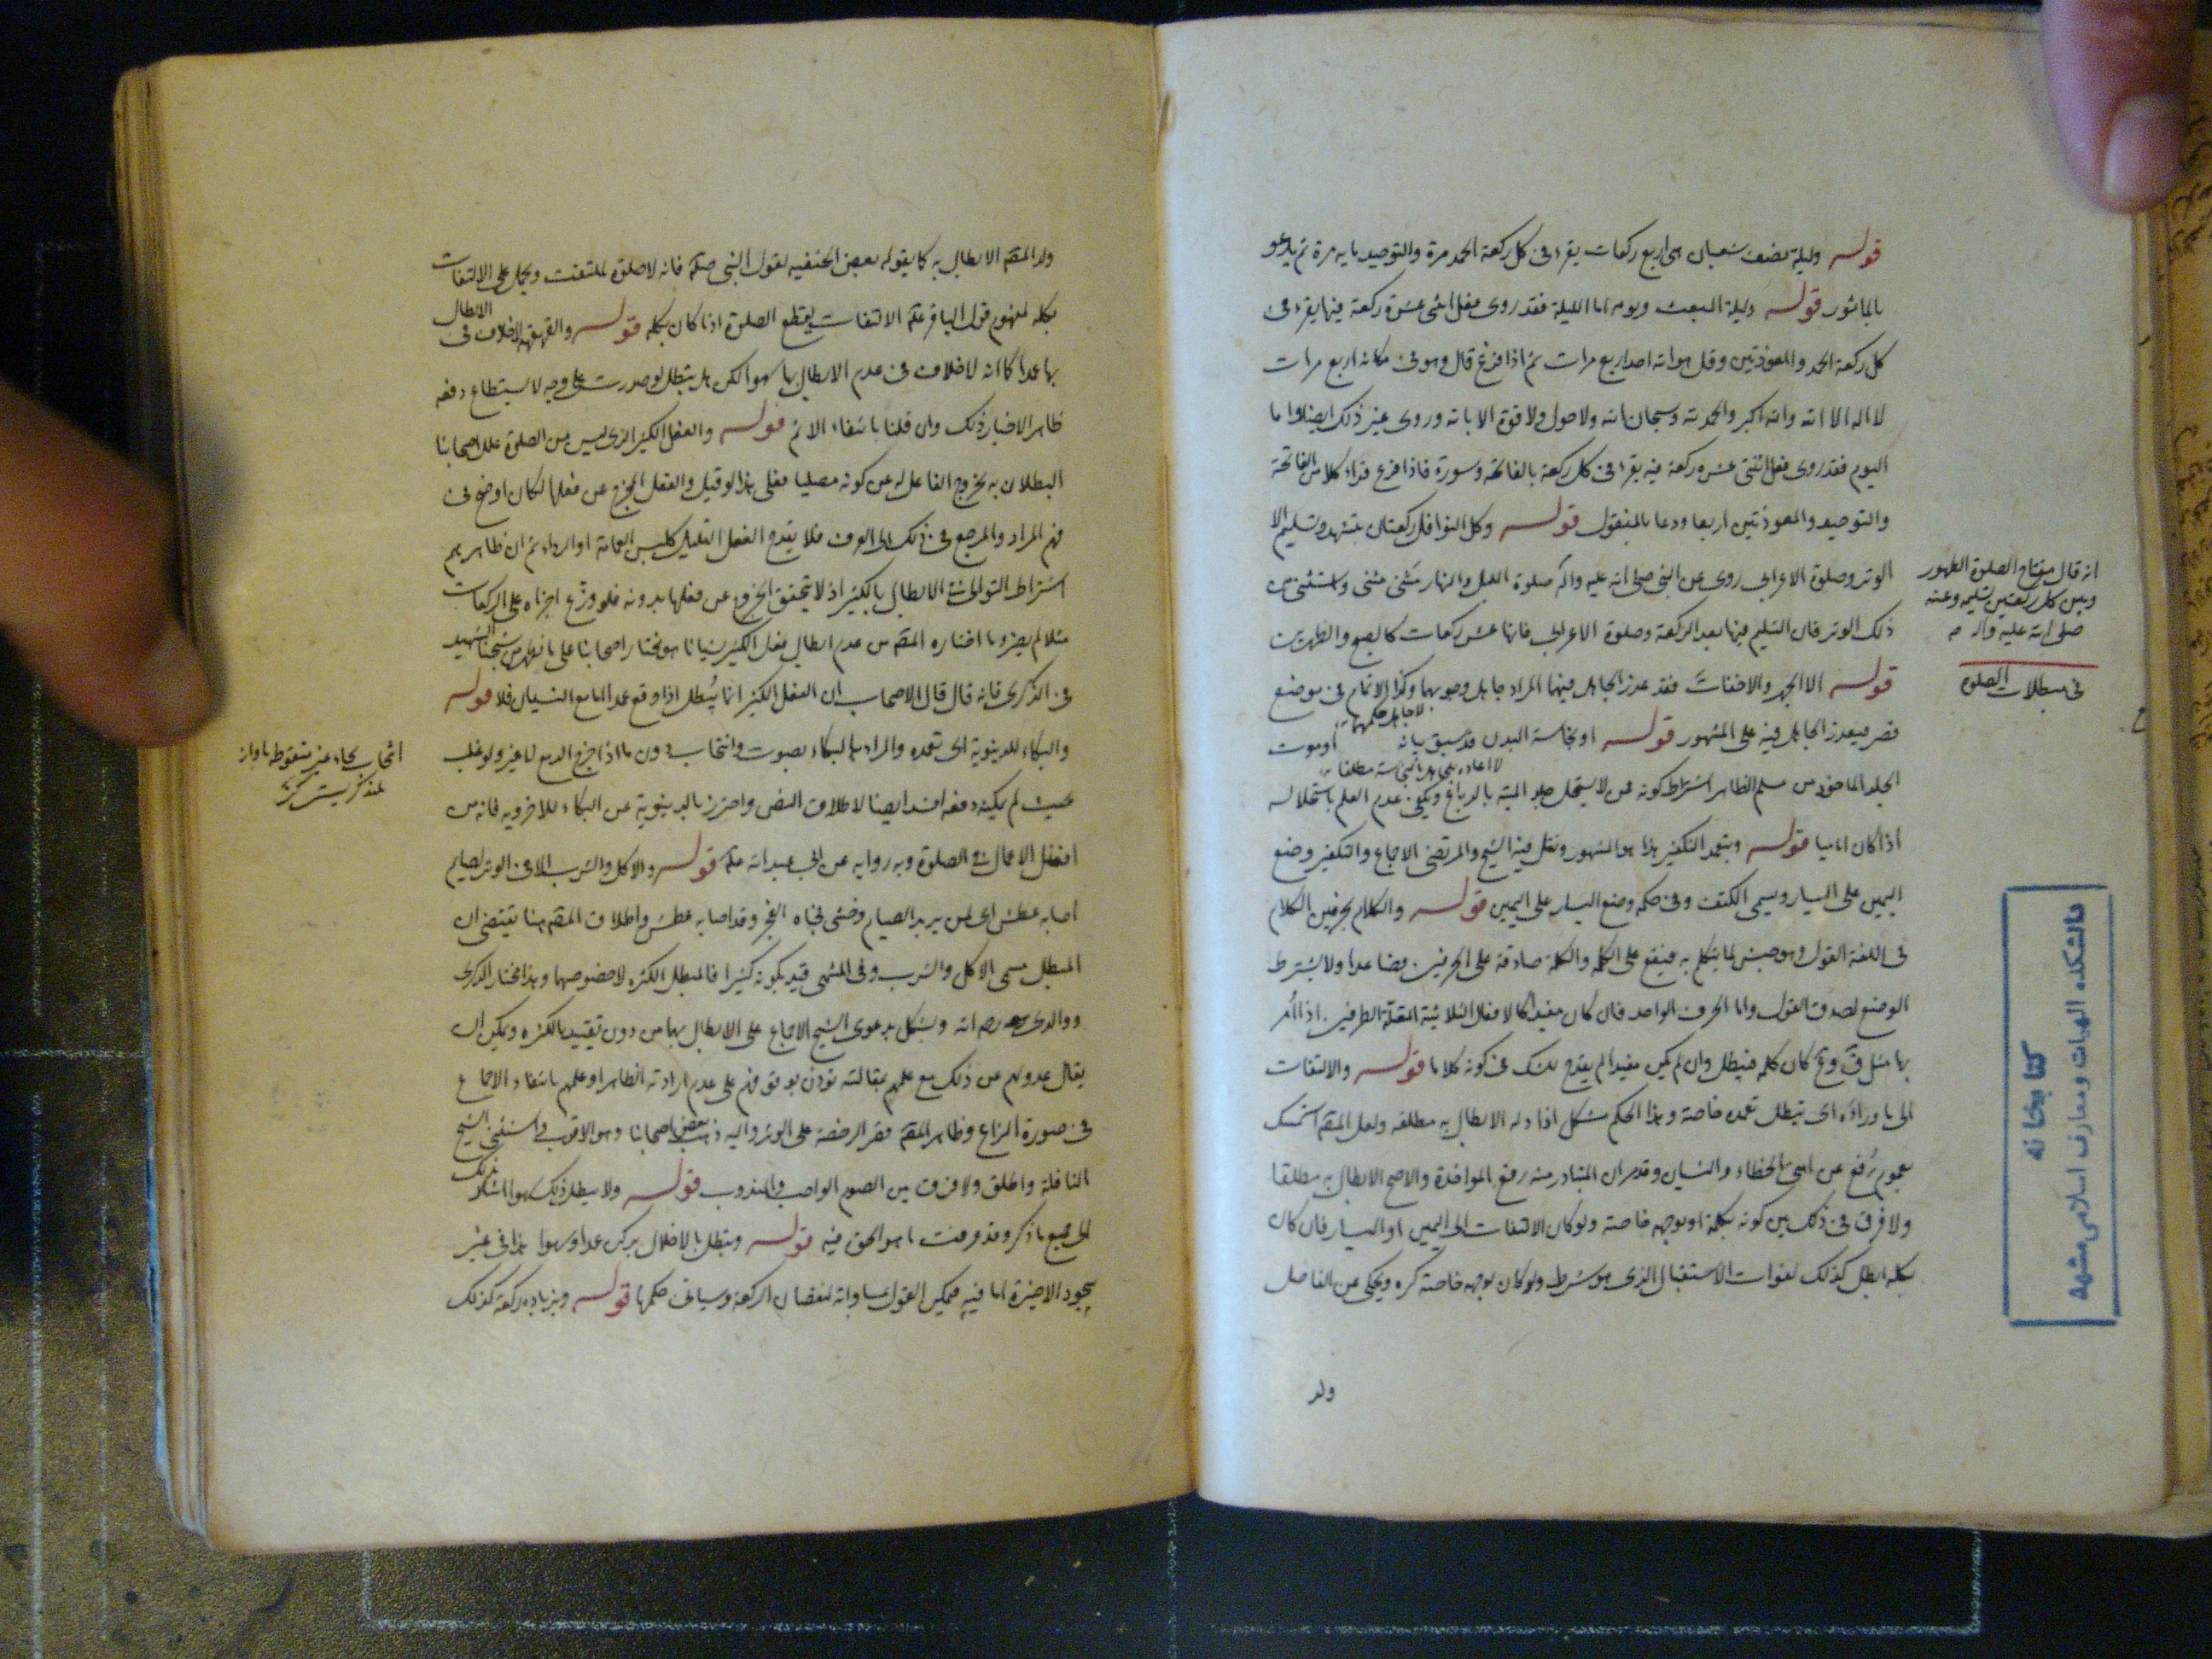 قوله وليلة نصف شعبان هى اربع ركعات يقرء فى كل ركعة الحمد مرة والتوحيد مايه مرة ثم يدعو
بالماثور قوله وليلة المبعث ويومه اما الليلة فقد روى فعل اثنى عشرة ركعة فيها يقرء فى
كل ركعة الحمد والمعوذتين وقل هو الله احد اربع مرات ثم اذا فرغ قال وهو فى مكانه اربع مرات
لا اله الا الله والله اكبر والحمد لله وسبحان الله ولا حول ولا قوة الا بالله وروى غير ذلك ايضا واما
اليوم فقد روى فعل اثنتى عشره ركعة فيه يقرء فى كل ركعة بالفاتحة وسورة فاذا فرغ قراء كلا من الفاتحة
والتوحيد والمعوذتين اربعا ودعا بالمنقول قوله وكل النوافل ركعتان بتشهد وتسليم الا
الوتر وصلوة الاعرابى روى عن النبى صلى الله عليه واله صلوة الليل والنهار مثنى مثنى واستثنى من
ذلك الوتر فان التسليم فيها بعد الركعة وصلوة الاعرابى فانها عشر ركعات كالصبح والظهرين
قوله الا الجهر والاخفات فقد عذر الجاهل فيهما المراد جاهل وجوبهما وكذا الاتمام فى موضع
لا جاهل حكمهما
قصر فيعذر الجاهل فيه على المشهور قوله او نجاسة البدن قد سبق بيانه او موت
لا اعاده على جاهل النجاسة مطلقا
الجلد الماخوذ من مسلم الظاهر اشتراط كونه ممن لا يستحل جلد الميته بالدباغ ويكفى عدم العلم باستحلاله
اذا كان اماميا قوله وبتعمد التكفير هذا هو المشهور ونقل فيه الشيخ والمرتضى الاجماع والتكفير وضع
اليمين على اليسار ويسمى الكتف وفى حكمه وضع اليسار على اليمين قوله والكلام بحرفين الكلام
فى اللغة القول وهو جنس لما يتكلم به فيقع على الكلمة والكلمة صادقة على الحرفين فصاعدا ولا يشترط
الوضع لصدق القول واما الحرف الواحد فان كان مفيدا كالافعال الثلاثية المعتلة الطرفين اذا امر
بها مثل ق و ع كان كلمة فيبطل وان لم يكن مفيدا لم يقدح للشك فى كونه كلاما قوله والالتفات
الى ما وراءه اى تبطل تعمده خاصة وهذا الحكم مشكل اذا دله الابطال به مطلقه ولعل المصة استمسك
بعموم رفع عن امتى الخطاء والنسيان وقد مر ان المتبادر منه رفع المواخذة والاصح الابطال به مطلقا
ولا فرق فى ذلك بين كونه بكله او بوجهه خاصة ولو كان الالتفات الى اليمين او اليسار فان كان
بكله ابطل كذلك لفوات الاستقبال الذى هو شرط ولو كان بوجهه خاصة كره ويحكى عن الفاضل
ولد
انه قال مفتاح الصلوة الطهور
وبين كل ركعتين تسليمه وعنه
صلى الله عليه واله
فى مبطلات الصلوة
كتابخانه
دانشكده الهيات ومعارف اسلامى مشهد
ولد المصة الابطال به كما يقوله بعض الحنفيه لقول النبى صلعم فانه لا صلوة لملتفت ويحمل على الالتفات
بكله لمفهوم قول الباقر علم الالتفات يقطع الصلوة اذا كان بكله قوله والقهقهه لا خلاف فى الابطال
بها عمدا كما انه لا خلاف فى عدم الابطال بها سهوا لكن هل يبطل لو صدرت على وجه لا يستطاع دفعه
ظاهر الاخبار ذلك وان قلنا بانتفاء الاثم قوله والفعل الكثير الذى ليس من الصلوة علل اصحابنا
البطلان به بخروج الفاعل له عن كونه مصليا فعلى هذا لو قيل والفعل المخرج عن فعلها لكان اوضح فى
فهم المراد والمرجع فى ذلك الى العرف فلا يقدح الفعل القليل كلبس العمامة او الرداء ثم ان ظاهرهم
اشتراط التوالى فى الابطال بالكثير اذ لا يتحقق الخروج عن فعلها بدونه فلو وزع اجزاه على الركعات
مثلا لم يضر وما اختاره المصة من عدم ابطال فعل الكثير نسيانا هو مختار اصحابنا على ما يظهر من شيخنا الشهيد
فى الذكرى فانه قال قال الاصحاب ان الفعل الكثير انما يبطل اذا وقع عمدا اما مع النسيان فلا قوله
والبكاء للدنيوية اى تعمده والمراد به البكاء بصوت وانتحاب دون ما اذا خرج الدمع لا غير ولو غلب
بحيث لم يمكنه دفعه افسد ايضا لاطلاق النص واحترز بالدنيوية عن البكاء للاخرويه فانه من
افضل الاعمال فى الصلوة وبه روايه عن ابى عبد الله علم قوله والاكل والشرب الا فى الوتر لصايم
اصابه عطش اى لمن يريد الصيام وخشى فجاه الفجر وقد اصابه عطش واطلاق المصة هنا يقتضى ان
المبطل مسمى الاكل والشرب وفى المنتهى قيد بكونه كثيرا فالمبطل الكثره لا خصوصهما وهذا مختار الذكرى
ووالدى رحمه الله ويشكل بدعوى الشيخ الاجماع على الابطال بهما من دون تقييد بالكثره ويمكن ان
يقال عدولهم عن ذلك مع علمهم بمقالته تؤذن بوقوفهم على عدم ارادته الظاهر او علمهم بانتفاء الاجماع
فى صورة النزاع وظاهر المصة قصر الرخصة على الوتر واليه ذهب بعض اصحابنا وهو الاقوى واستثنى الشيخ
النافلة واطلق ولا فرق بين الصوم الواجب والمندوب قوله ولا يبطل ذلك سهوا اشار بذلك
الى جميع ما ذكر وقد عرفت ما هو الحق فيه قوله وتبطل بالاخلال بركن عمدا وسهوا هذا فى غير
سجود الاخيرة اما فيه فيمكن القول بمساواته لنقصان الركعة وسياتى حكمها قوله وبزياده ركعة كذلك
انتحاب بحاء غير منقوطه باواز
بلند گريستن كنز